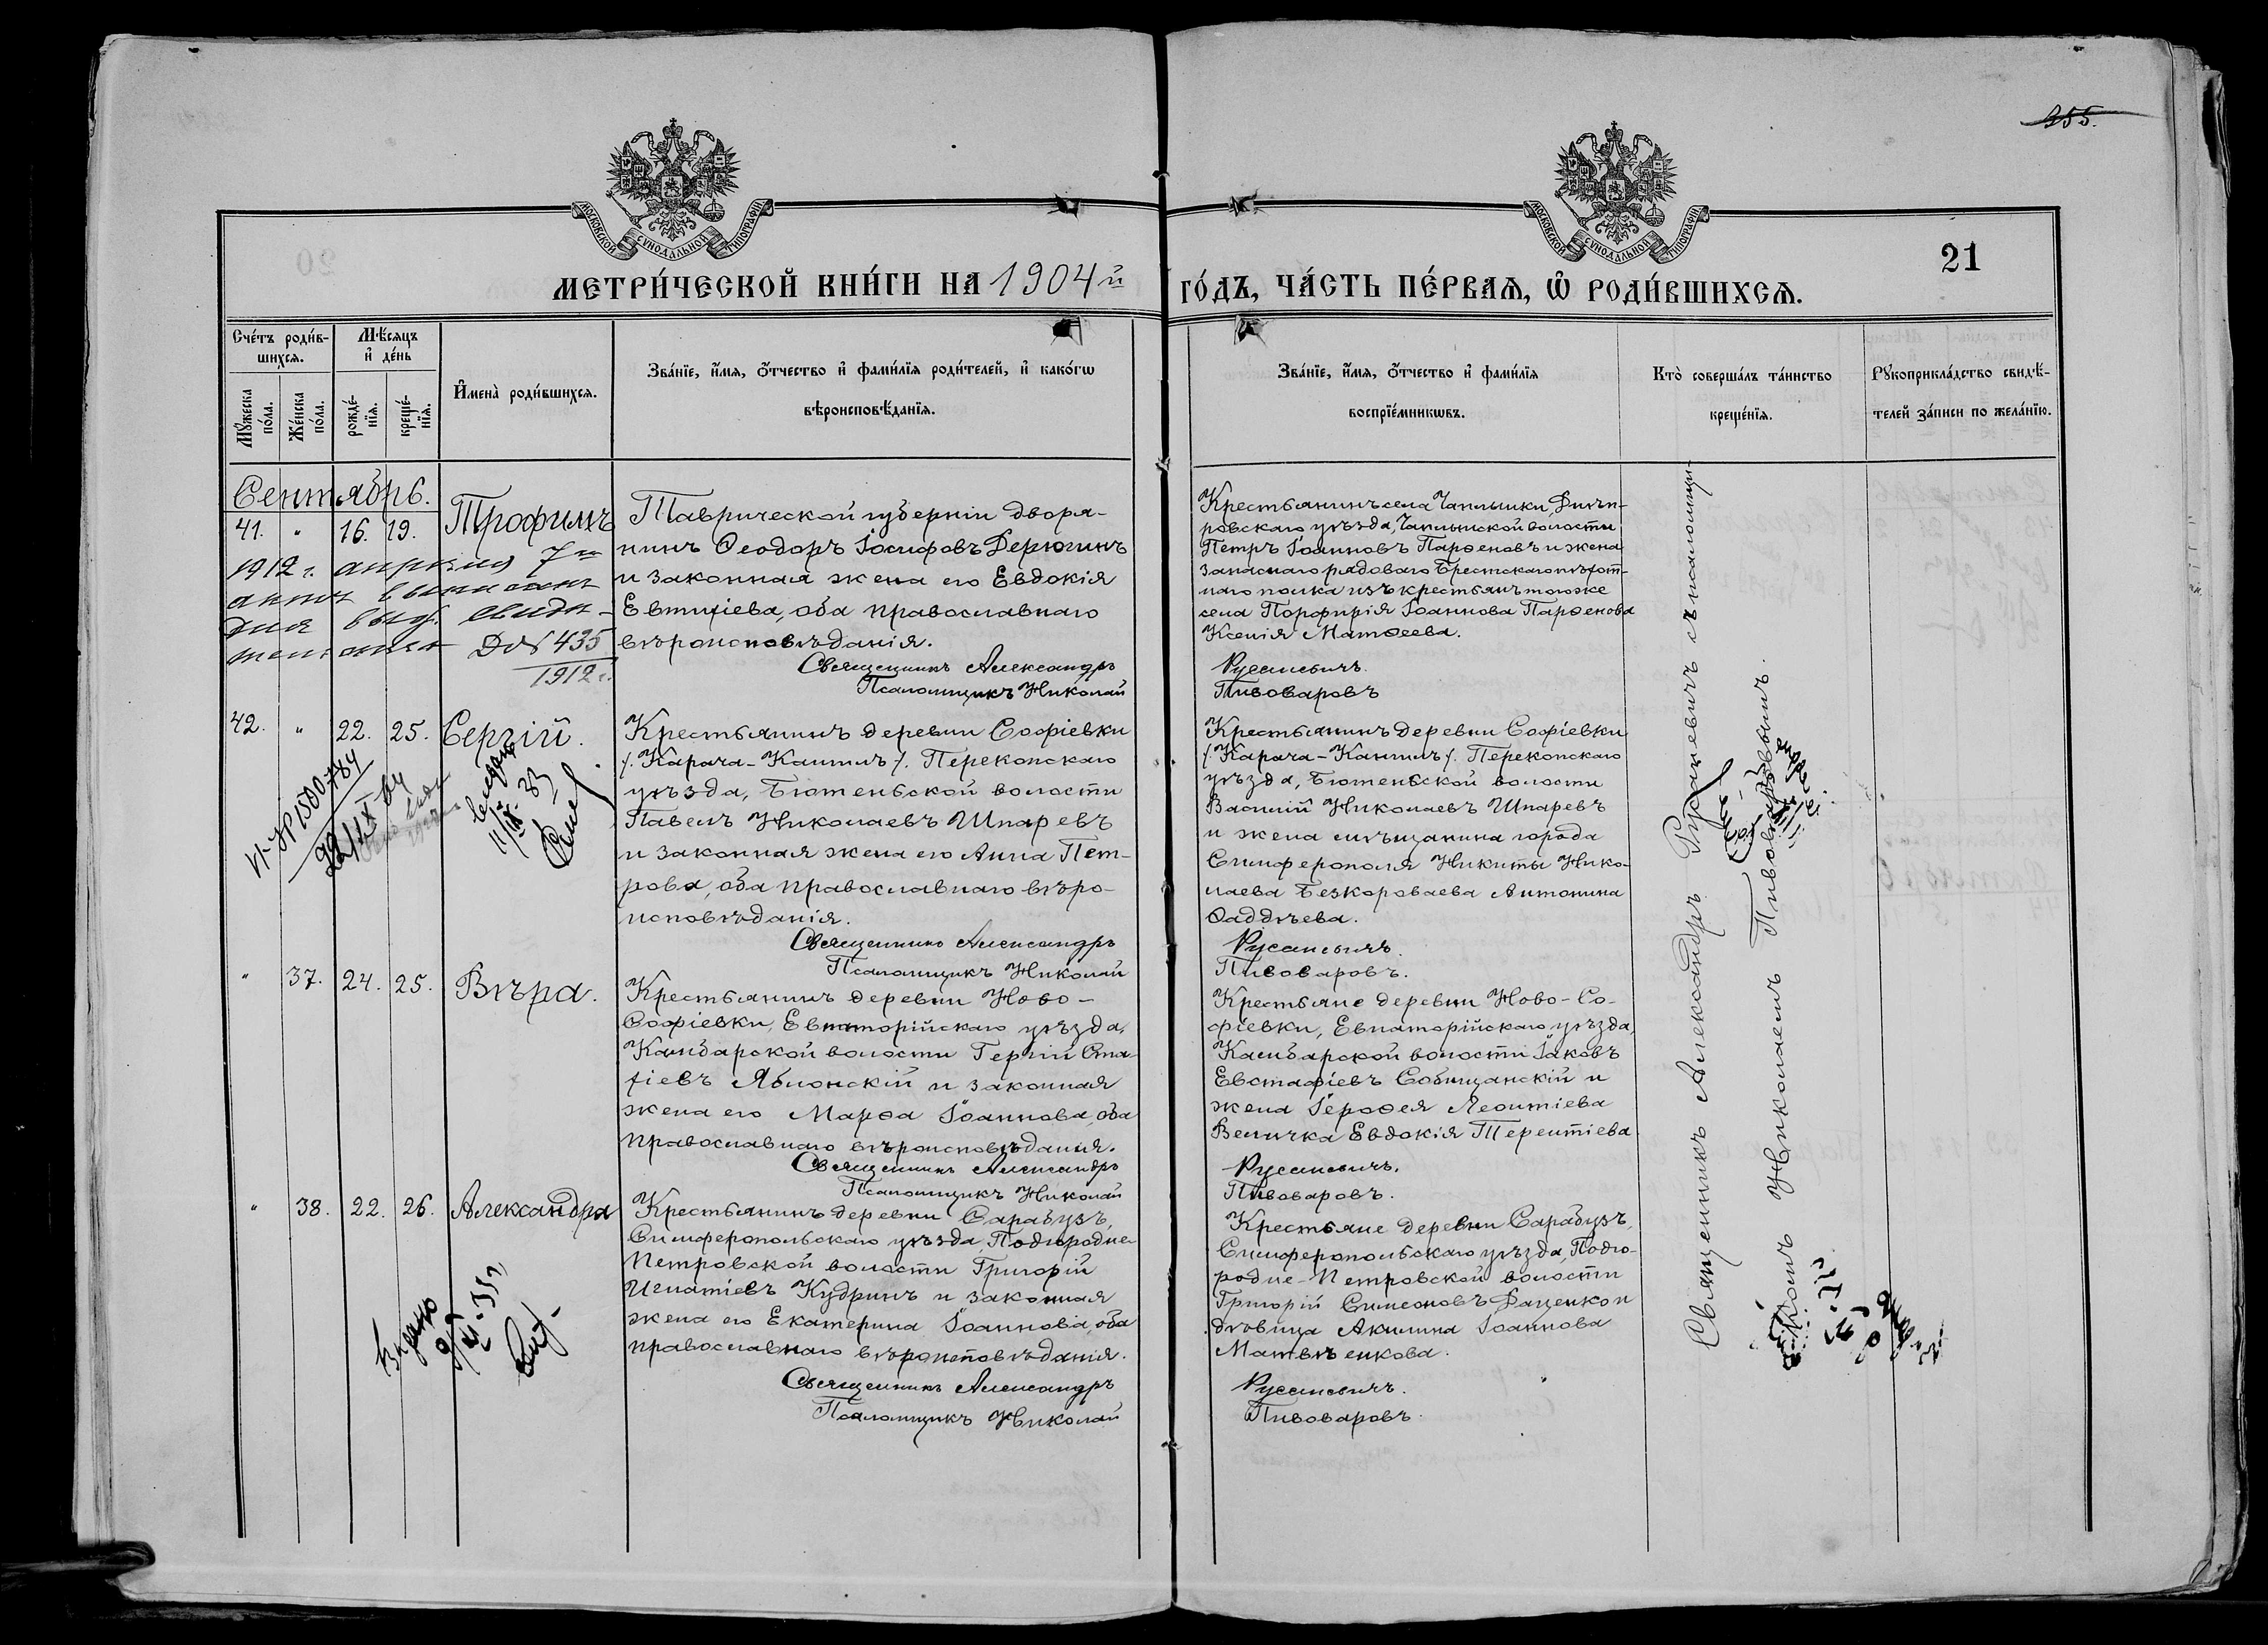 355.
МОСКОВСКОЙ СѴНОДАЛЬНОЙ ТИПОГРАФІИ
МОСКОВСКОЙ СѴНОДАЛЬНОЙ ТИПОГРАФІИ
21
МЕТРИ́ЧЕСКОЙ КНИ́ГИ НА 1904й ГО́ДЪ, ЧА́СТЬ ПЕ́РВАѦ, Ѽ РОДИ́ВШИХСѦ.
Сче́тъ роди́в-
шихсѧ.
Мꙋ́жеска по́ла.
Же́нска по́ла.
Мѣ́сѧцъ
и҆ де́нь
рожде́-
нїѧ.
креще́-
нїѧ.
И҆мена̀ роди́вшихсѧ.
Зва́нїе, и҆́мѧ, ѻ҆́тчество и҆ фами́лїѧ роди́телей, и҆ како́гѡ
вѣроисповѣ́данїѧ.
Зва́нїе, и҆́мѧ, ѻ҆́тчество и҆ фами́лїѧ
воспрїе́мникѡвъ.
Кто̀ соверша́лъ та́инство
креще́нїѧ.
Рꙋкоприкла́дство свидѣ́-
телей за́писи по жела́нїю.
Сентябрь.
41. " 16. 19. Трофимъ
1912 г. апрѣля 7го
выписанъ
для выд. свидѣ-
№ 435
1912 г.
Таврической губерніи дворя-
нинъ Ѳеодоръ Іосифовъ Дерюгинъ
и законная жена его Евдокія
Евтихіева, оба православнаго
вѣроисповѣданія.
Священникъ Александръ
Псаломщикъ Николай
Крестьянинъ села Чаплынки, Днѣп-
ровскаго уѣзда, Чаплынской волости
Петръ Іоанновъ Парѳеновъ и жена
запаснаго рядового Брестскаго пѣхот-
наго полка изъ крестьянъ того же
села Порфирія Іоаннова Парѳенова
Ксенія Матѳеева.
Русаневичъ.
Пивоваровъ
42. " 22. 25. Сергій.
Крестьянинъ деревни Софіевки
/. Карача-Кангилъ /. Перекопскаго
уѣзда, Бютеньской волости
Павелъ Николаевъ Шпаревъ
и законная жена его Анна Пет-
рова, оба православнаго вѣро-
исповѣданія.
Священникъ Александръ
Псаломщикъ Николай
Крестьянинъ деревни Софіевки
/. Карача-Кангилъ /. Перекопскаго
уѣзда, Бютеньской волости
Василій Николаевъ Шпаревъ
и жена мѣщанина города
Симферополя Никиты Нико-
лаева Безкороваева Антонина
Ѳаддѣева.
Русаневичъ.
Пивоваровъ.
" 37. 24. 25. Вѣра.
Крестьянинъ деревни Ново-
Софіевки, Евпаторійскаго уѣзда,
Камбарской волости Гергій Ста-
хіевъ Яблонскій и законная
жена его Марѳа Іоаннова, оба
православнаго вѣроисповѣданія.
Священникъ Александръ
Псаломщикъ Николай
Крестьяне деревни Ново-Со-
фіевки, Евпаторійскаго уѣзда,
Камбарской волости Іаковъ
Евстафіевъ Собищанскій и
жена Іероѳея Леонтіева
Величка Евдокія Терентіева
Русаневичъ.
Пивоваровъ.
" 38. 22. 26. Александра
Выдано
Крестьянинъ деревни Сарабузъ,
Симферопольскаго уѣзда, Подгородне-
Петровской волости Григорій
Игнатіевъ Кудринъ и законная
жена его Екатерина Іоаннова, оба
православнаго вѣроисповѣданія.
Священникъ Александръ
Псаломщикъ Николай
Крестьяне деревни Сарабузъ,
Симферопольскаго уѣзда, Подго-
родне-Петровской волости
Григорій Симеоновъ Даценко и
дѣвица Акилина Іоаннова
Матвѣенкова.
Русаневичъ.
Пивоваровъ.
Священникъ Александръ Русаневичъ съ псаломщи-
комъ Николаемъ Пивоваровымъ.